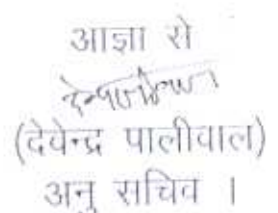 आज्ञा से
(देवेन्द्र पालीवाल)
अनु सचिव ।